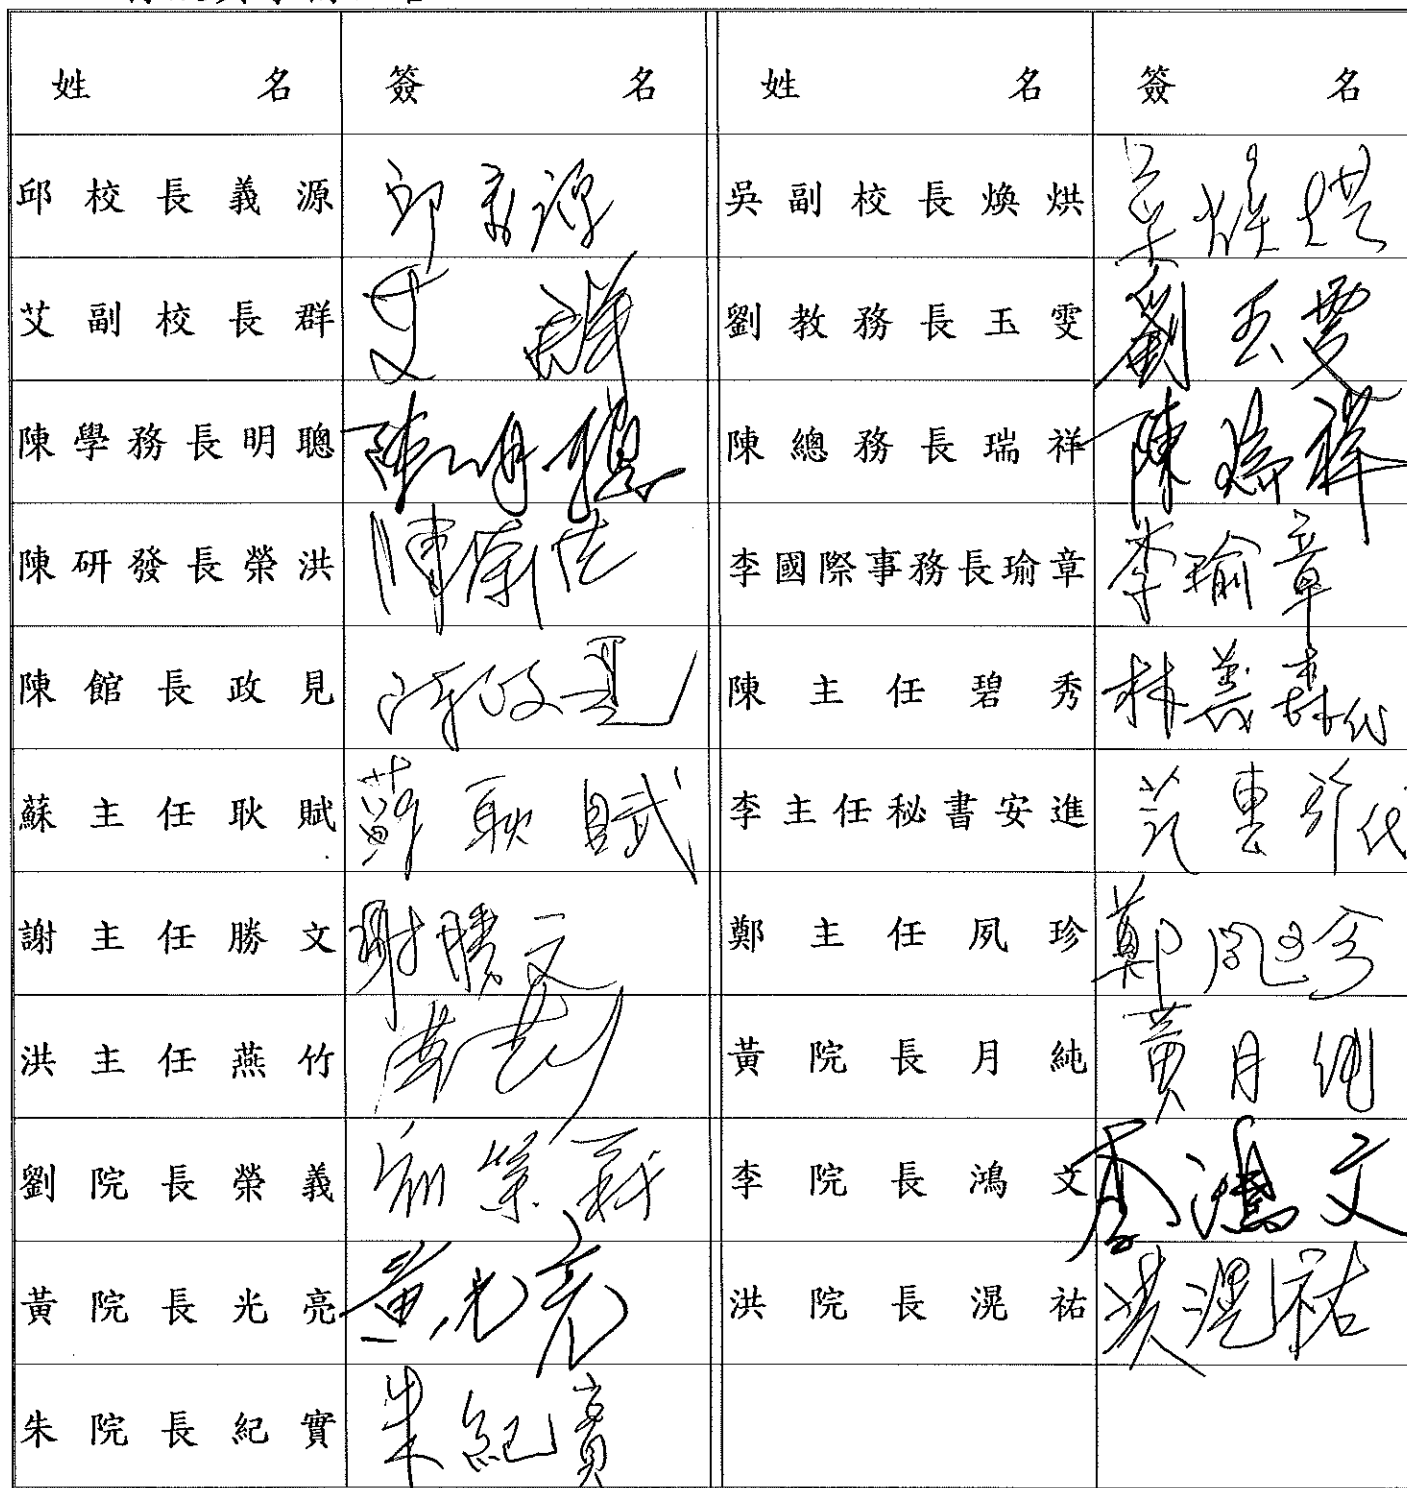 姓名 簽名 姓名 簽名
邱校長義源 邱義源 吳副校長煥烘 吳煥烘
艾副校長群 艾群 劉教務長玉雯 劉玉雯
陳學務長明聰 陳明聰 陳總務長瑞祥 陳瑞祥
陳研發長榮洪 陳榮洪 李國際事務長瑜章 李瑜章
陳館長政見 陳政見 陳主任碧秀 林義森代
蘇主任耿賦 蘇耿賦 李主任秘書安進 范惠珍代
謝主任勝文 謝勝文 鄭主任夙珍 鄭夙珍
洪主任燕竹 黃院長月純 黃月純
劉院長榮義 劉榮義 李院長鴻文 李鴻文
黃院長光亮 黃光亮 洪院長滉祐 洪滉祐
朱院長紀實 朱紀實